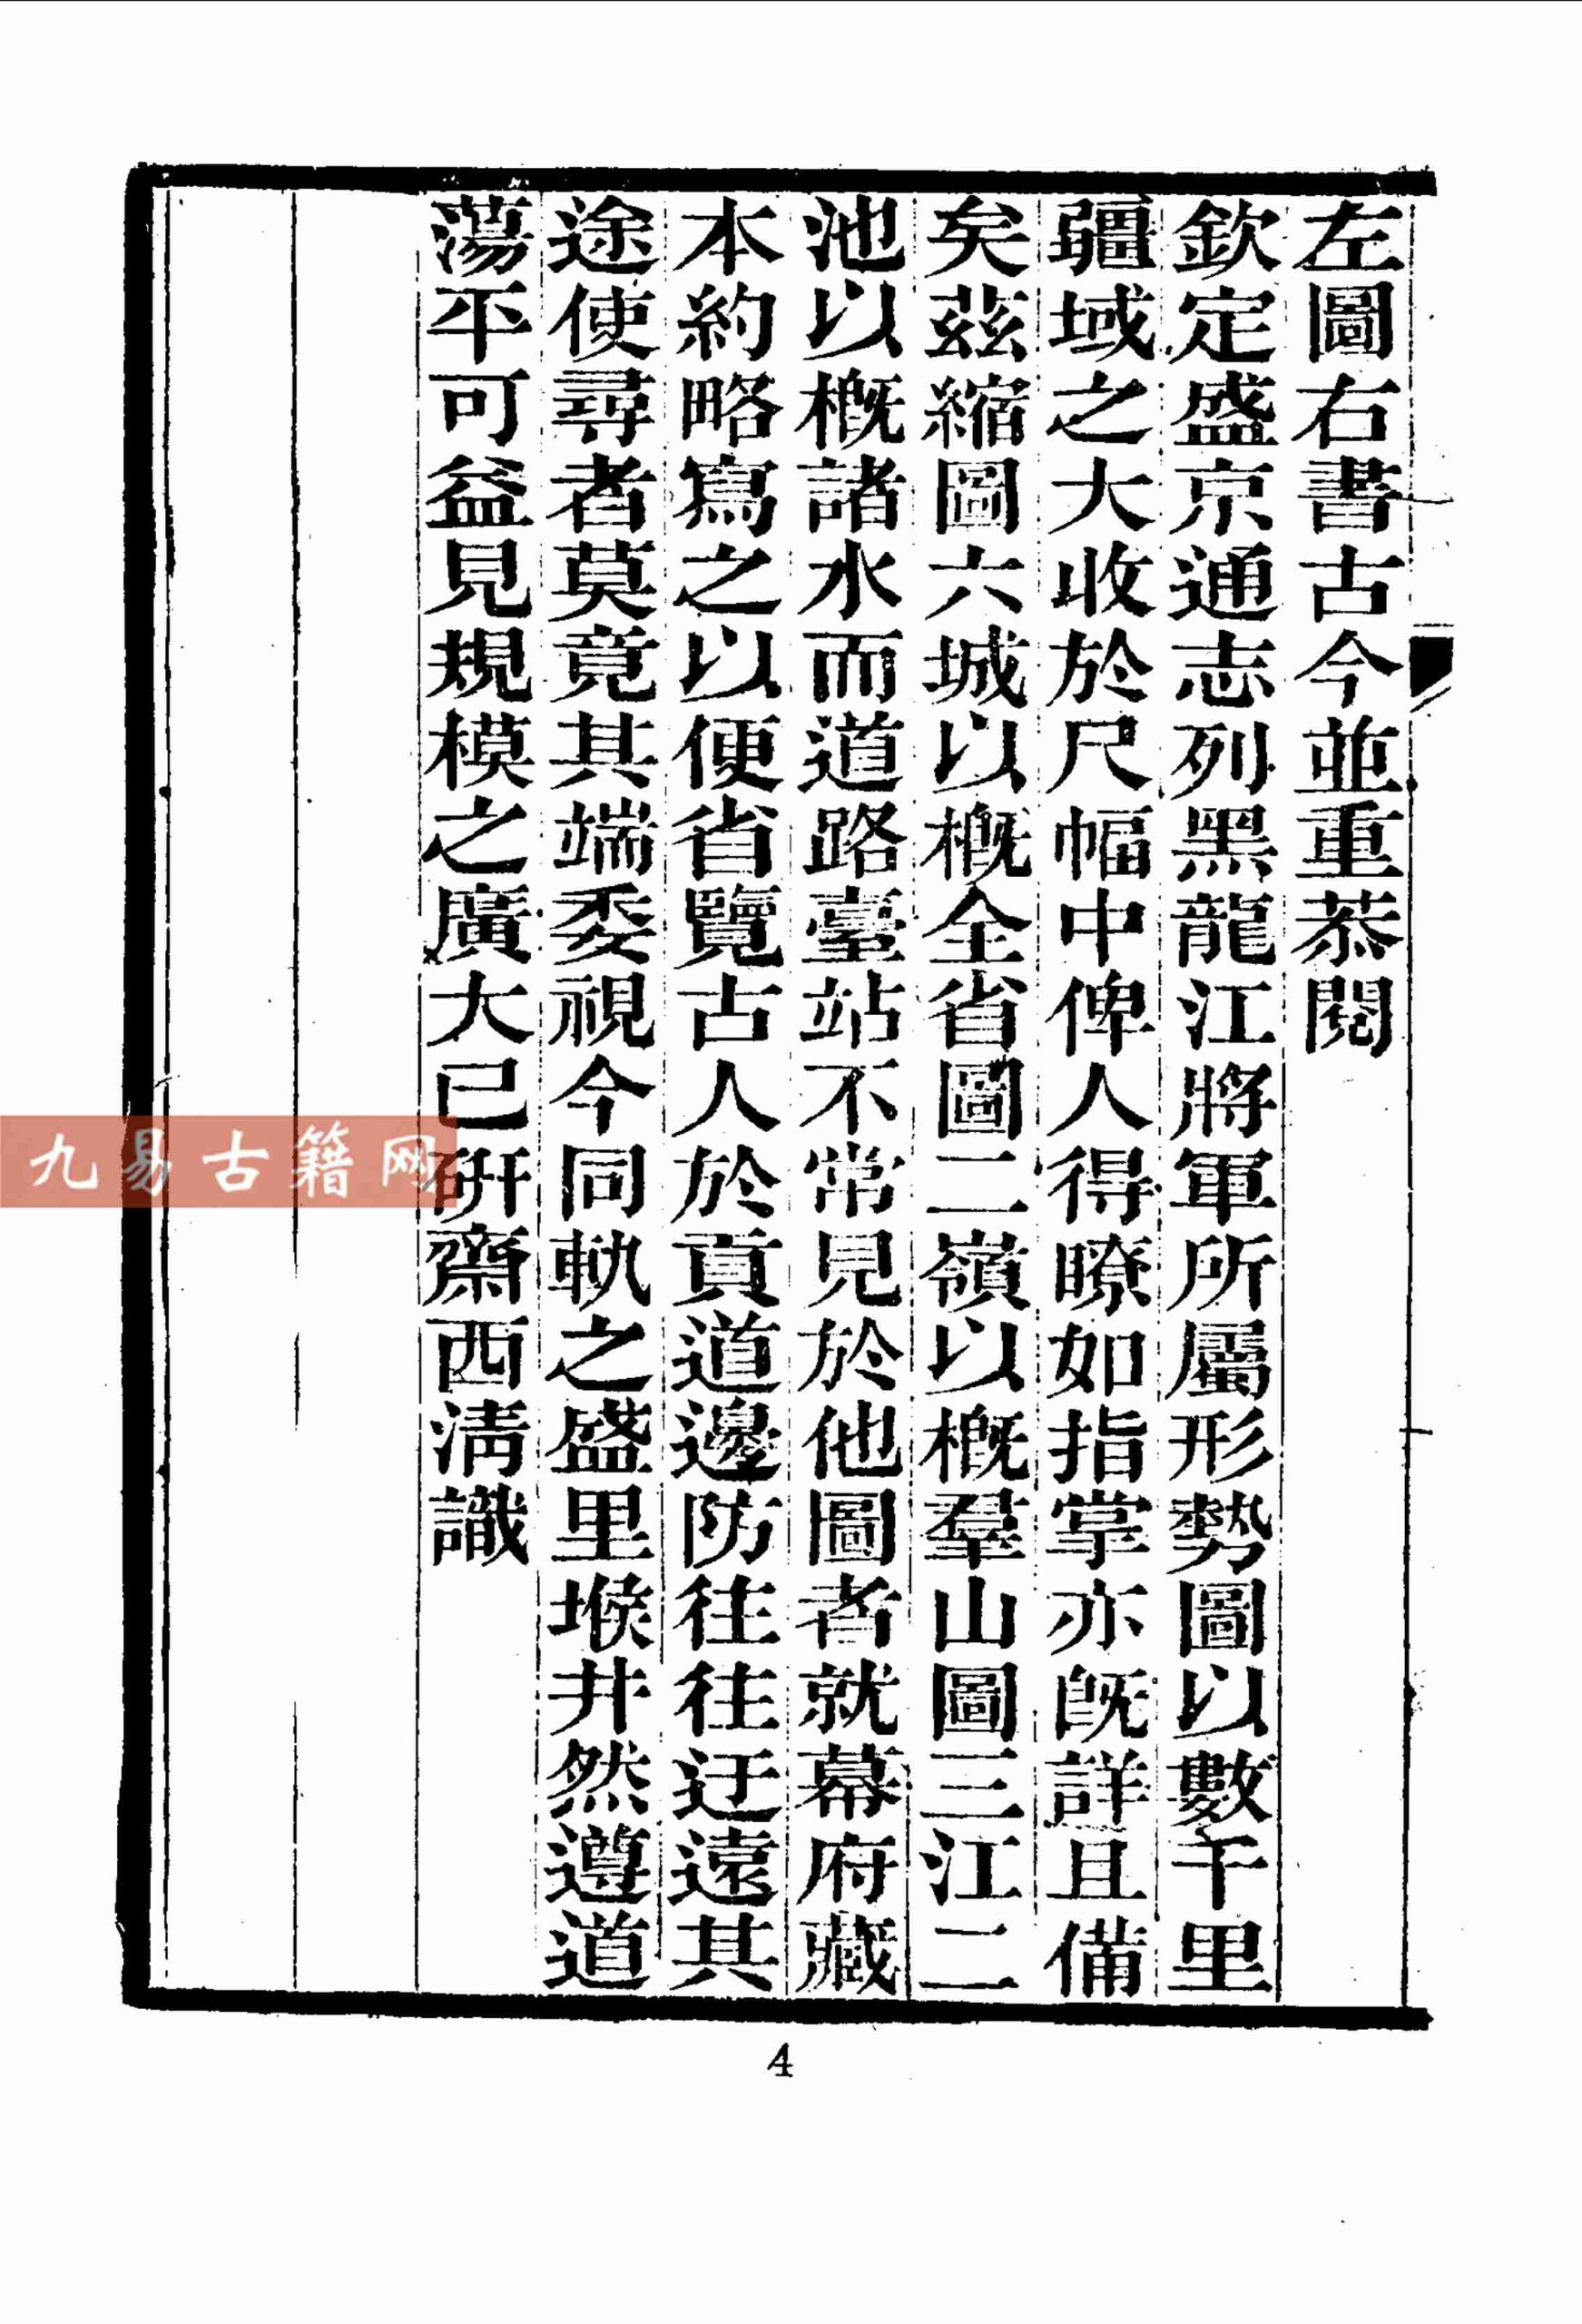 左圖右書古今並重恭閱
欽定盛京通志列黑龍江將軍所屬形勢圖以數千里
疆域之大收於尺幅中俾人得瞭如指掌亦旣詳且備
矣茲縮圖六城以槪全省圖二嶺以槪羣山圖三江二
池以槪諸水而道路臺站不常見於他圖者就幕府藏
本約略寫之以便省覽古人於貢道邊防往往迂遠其
途使尋者莫竟其端委視今同軌之盛里堠井然遵道
蕩平可益見規模之廣大已研齋西淸識
九易古籍网
4